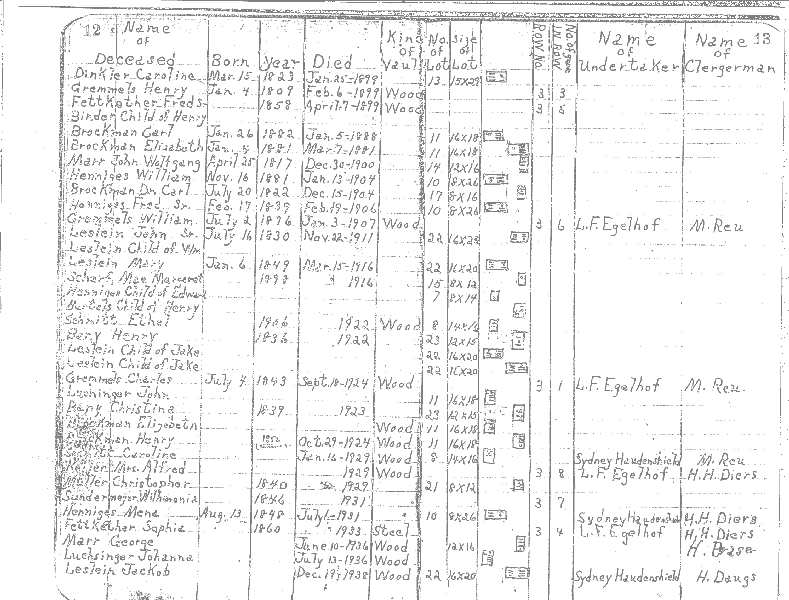 12 Name of Deceased Born Year Died Kind of Vault No. of Lot Size of Lot Row No. No. of Grave in Row Name of Undertaker Name of Clergerman 13
Dinkier Caroline Mar. 15 1823 Jan. 25-1899 13 15x29
Gremmels Henry Jan. 4 1809 Feb. 6-1899 Wood 3 3
Fettkether Freds 1858 April 7-1899 Wood 3 5
Binder Child of Henry
Brockman Carl Jan. 26 1882 Jan. 5-1888 11 16x18
Brockman Elisabeth Jan. 5 1881 Mar. 7-1881 11 16x18
Marr John Wolfgang April 25 1817 Dec. 30-1900 14 12x16
Henniges William Nov. 16 1881 Jan. 13-1904 10 8x26
Brockman Dr. Carl July 20 1822 Dec. 15-1904 17 8x16
Henniges Fred. Sr. Feb. 17 1839 Feb. 19-1906 10 8x26
Gremmels William July 2 1876 Jan. 3-1907 Wood 3 6 L.F. Egelhof M. Reu
Leslein John Sr. July 16 1830 Nov. 22-1911 22 16x20
Leslein Child of Wm
Leslein Mary Jan. 6 1849 Mar. 15-1916 22 16x20
Scharf, Mae Margaret 1898 " 1916 15 8x12
Henniges Child of Edward 7 8x14
Bartels Child of Henry
Schmitt Ethel 1906 1922 Wood 8 14x16
Bany Henry 1836 1922 23 12x15
Leslein Child of Jake 22 16x20
Leslein Child of Jake 22 16x20
Gremmels Charles July 4 1843 Sept. 18-1924 Wood 3 1 L.F. Egelhof M. Reu
Luchinger John 11 16x18
Bany Christine 1839 1923 23 12x15
Brockman Elizabeth Wood 11 16x18
Brockman Henry Oct. 29-1924 Wood 11 16x18
Schmitt Caroline Jan. 16-1929 Wood 8 14x16 Sydney Haudenshield M. Reu
Keller Mrs. Alfred 1929 Wood 3 8 L.F. Egelhof H.H. Diers
Moller Christopher 1840 1929 21 8x12
Sundermeyer Wilhemenia 1846 1931 3 7
Henniges Mena Aug. 13 1848 July 1-1931 10 8x26 Sydney Haudenshield H.H. Diers
Fettkether Sophia 1860 " 1933 Steel 3 4 L.F. Egelhof H.H. Diers
Marr George June 10-1936 Wood 12x16 H.
Luchsinger Johanna July 13-1936 Wood
Leslein Jackob Dec. 19-1938 Wood 22 16x20 Sydney Haudenshield H. Daugs